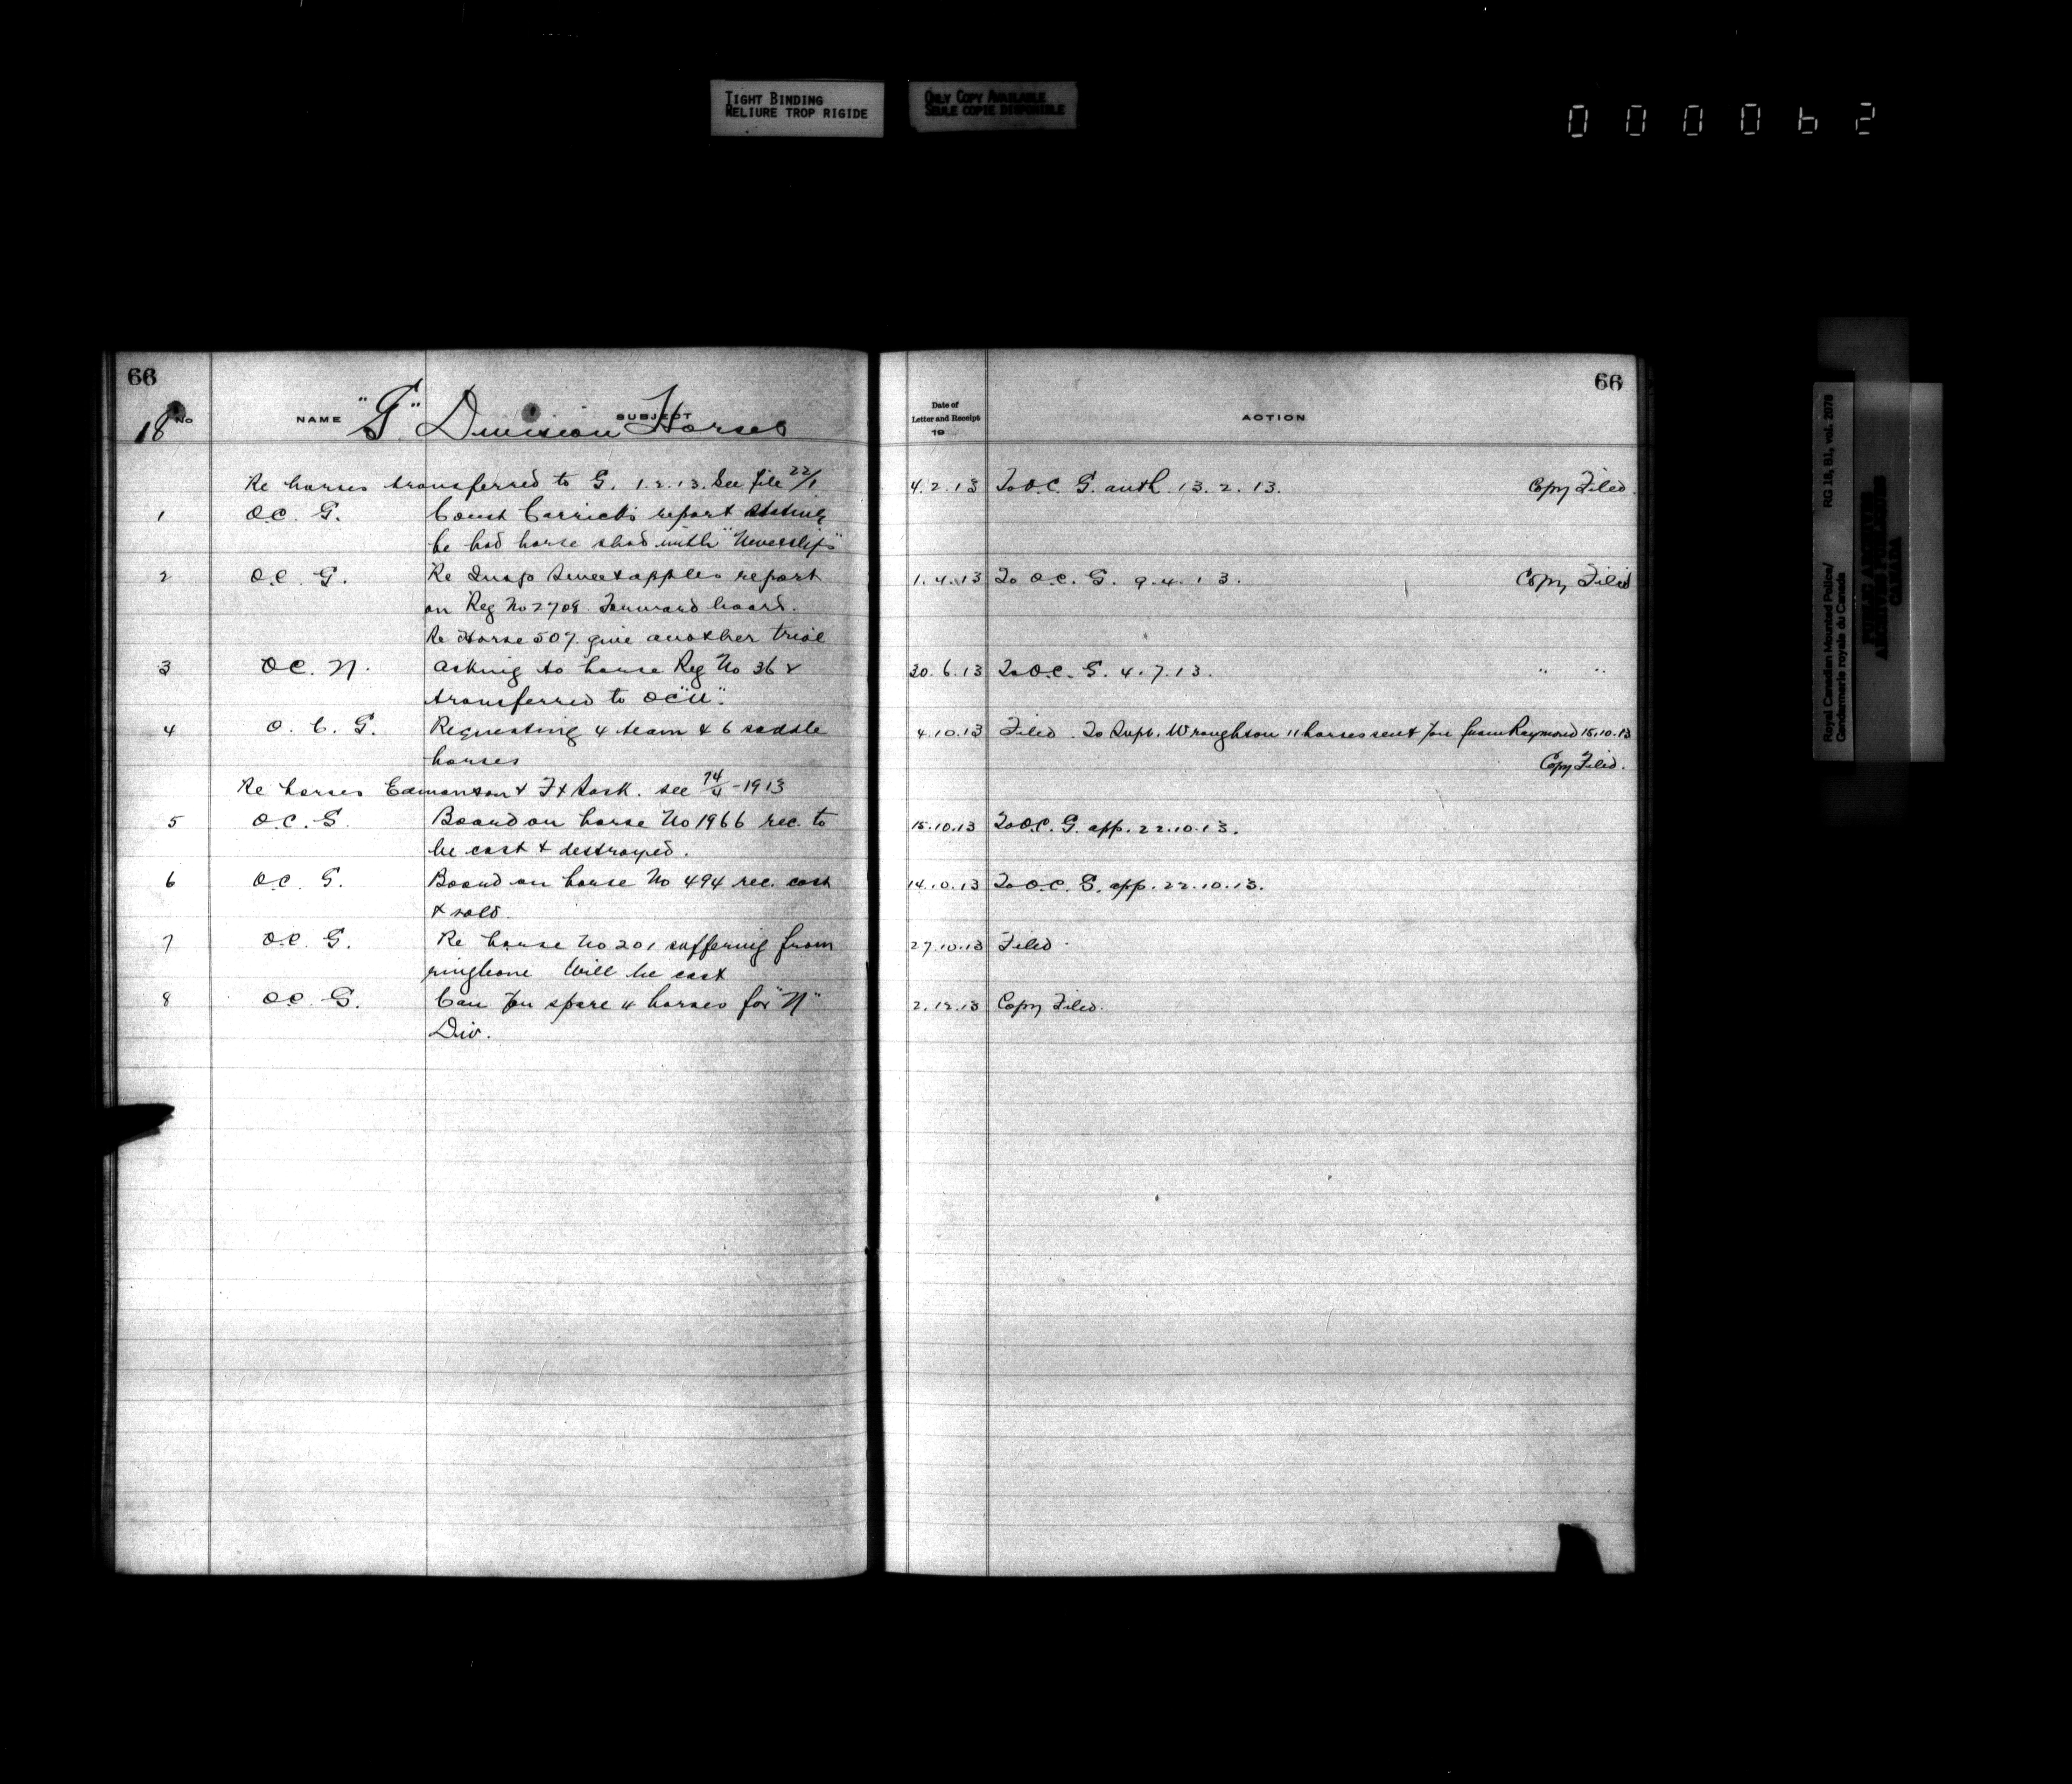 TIGHT BINDING
RELIURE TROP RIGIDE
ONLY COPY AVAILABLE
SEULE COPIE DISPONIBLE
000062
66
18 No NAME SUBJECT
"G" Division Horses
Re horses transferred to G. 1.2.13. See file 22/1
1 O.C. G. Const Carrick's report stating
he had horse shod with "Neverslips"
2 O.C. G. Re Insp Sweetapples report
on Reg No 2708. Forward board.
Re Horse 507 give another trial
3 O.C. N. Asking to have Reg No 362
transferred to OC "N".
4 O. C. G. Requesting 4 team & 6 saddle
horses
Re horses Edmonton & Ft Sask. see 74/4-1913
5 O.C. G. Board on horse No 1966 rec. to
be cast & destroyed.
6 O.C. G. Board on horse No 494 rec. cast
& sold.
7 O.C. G. Re horse No 201 suffering from
ringbone Will be cast
8 O.C. G. Can you spare 4 horses for "N"
Div.
66
Date of
Letter and Receipt
19
ACTION
4.2.13 To O.C. G. auth. 13.2.13. Copy Filed.
1.4.13 To O.C. G. 9.4.13. Copy Filed
30.6.13 To O.C. G. 4.7.13. " "
4.10.13 Filed. To Supt. Wroughton 11 horses sent you from Raymond 15.10.13
Copy Filed.
15.10.13 To O.C. G. app. 22.10.13.
14.10.13 To O.C. G. app. 22.10.13.
27.10.13 Filed.
2.12.13 Copy Filed.
Royal Canadian Mounted Police/ RG 18, B1, vol. 2078
Gendarmerie royale du Canada
CANADA